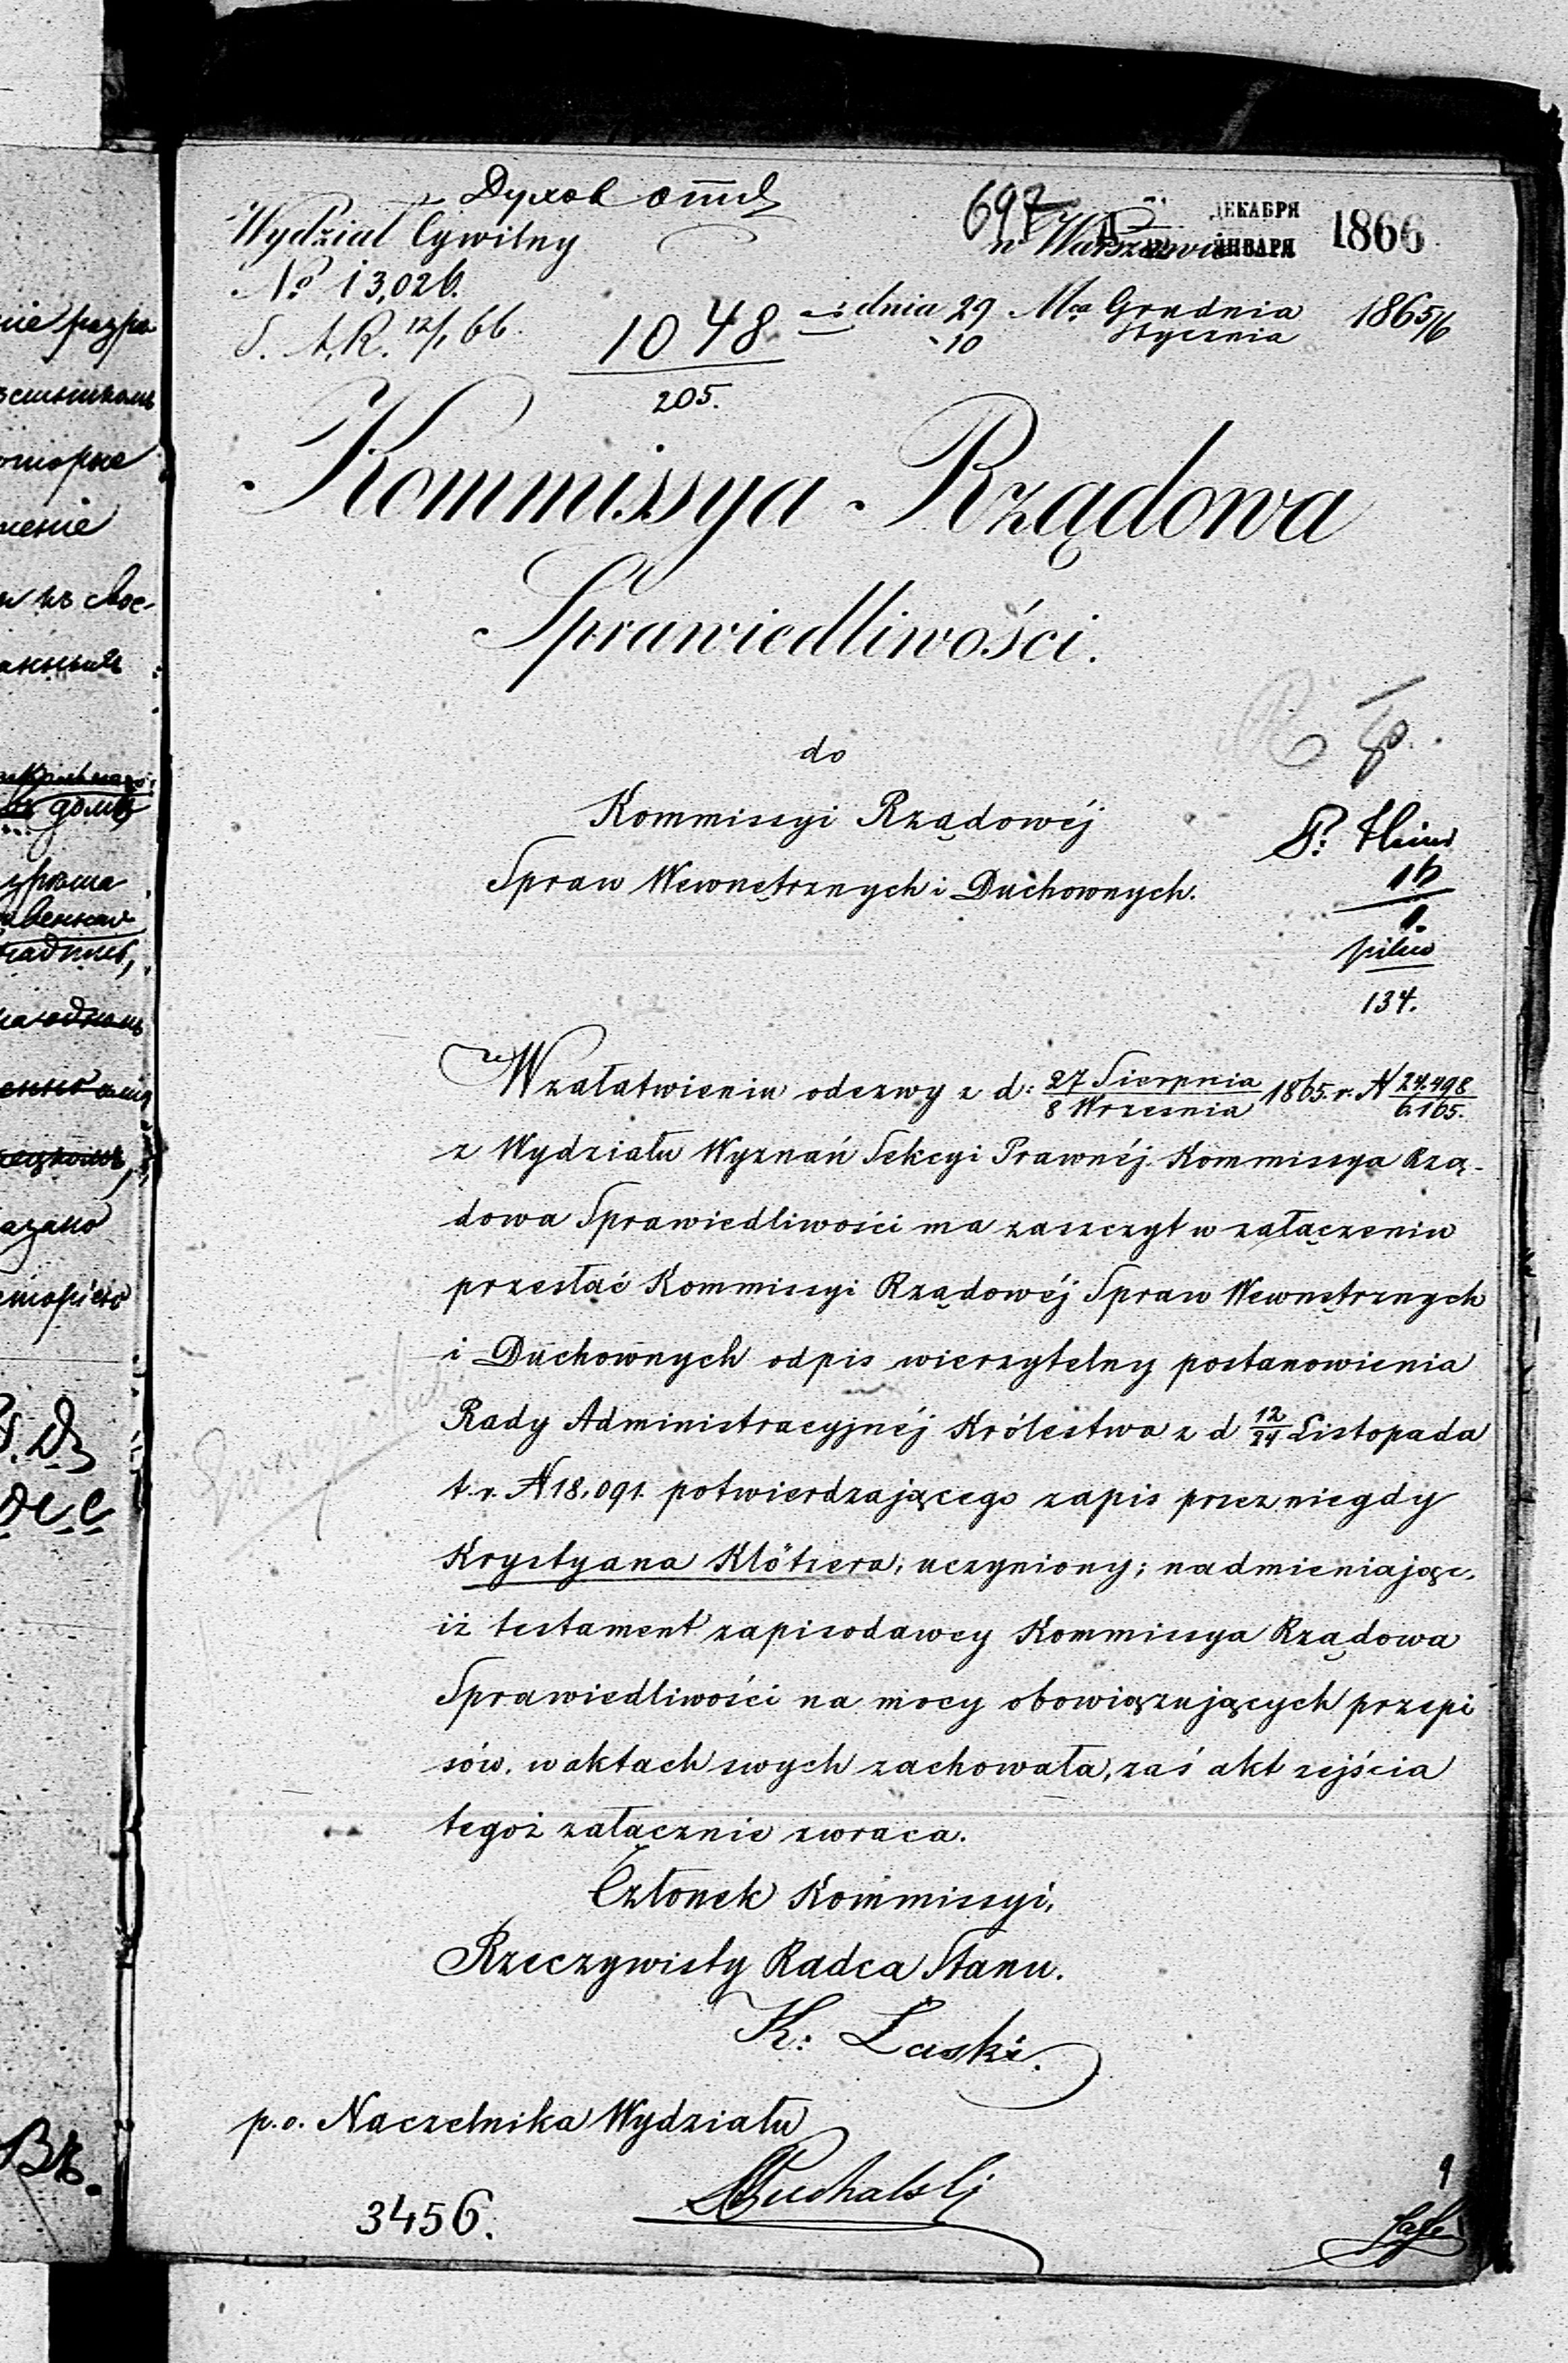 Духов отд
Wydział Cywilny
697
ДЕКАБРЯ
ЯНВАРЯ 1866
w Warszawie
№ 13,026.
1048
205.
dnia 29 Mca Grudnia 1865/6
10 Stycznia
Kommissya Rządowa
Sprawiedliwości.
do
Kommissyi Rządowéj
Spraw Wewnętrznych i Duchownych.
pilno
134.
W załatwieniu odezwy z d: 27 Sierpnia / 8 Września 1865. r. N 24.498 / 6.165.
z Wydziału Wyznań Sekcyi Prawnéj Kommissya Rzą-
dowa Sprawiedliwości ma zaszczyt w załączeniu
przesłać Kommissyi Rządowéj Spraw Wewnętrznych
i Duchownych odpis wierzytelny postanowienia
Rady Administracyjnéj Królestwa z d 12/24 Listopada
t. r. N 18,091. potwierdzającego zapis przez niegdy
Krystyana Klötzera, uczyniony; nadmieniając,
iż testament zapisodawcy Kommissya Rządowa
Sprawiedliwości na mocy obowiązujących przepi
sów, w aktach swych zachowała, zaś akt zejścia
tegoż załącznie zwraca.
Członek Kommissyi,
Rzeczywisty Radca Stanu.
K: Laski.
p. o. Naczelnika Wydziału
Puchalski
3456.